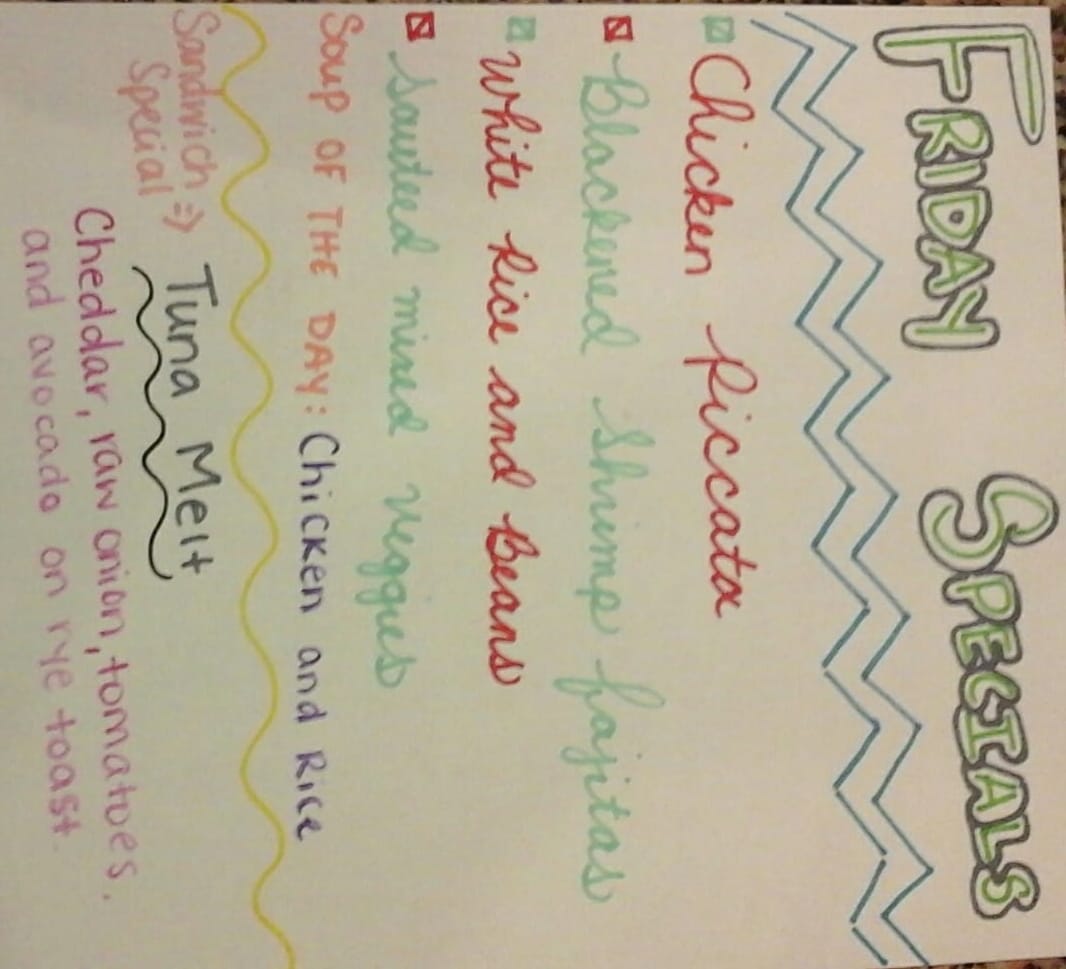 FRIDAY SPECIALS
Chicken Piccata
Blackened Shrimp fajitas
White Rice and Beans
Sauteed mixed veggies
Soup OF THE DAY: Chicken and Rice
Sandwich => Tuna Melt
Special
Cheddar, raw onion, tomatoes,
and avocado on rye toast.